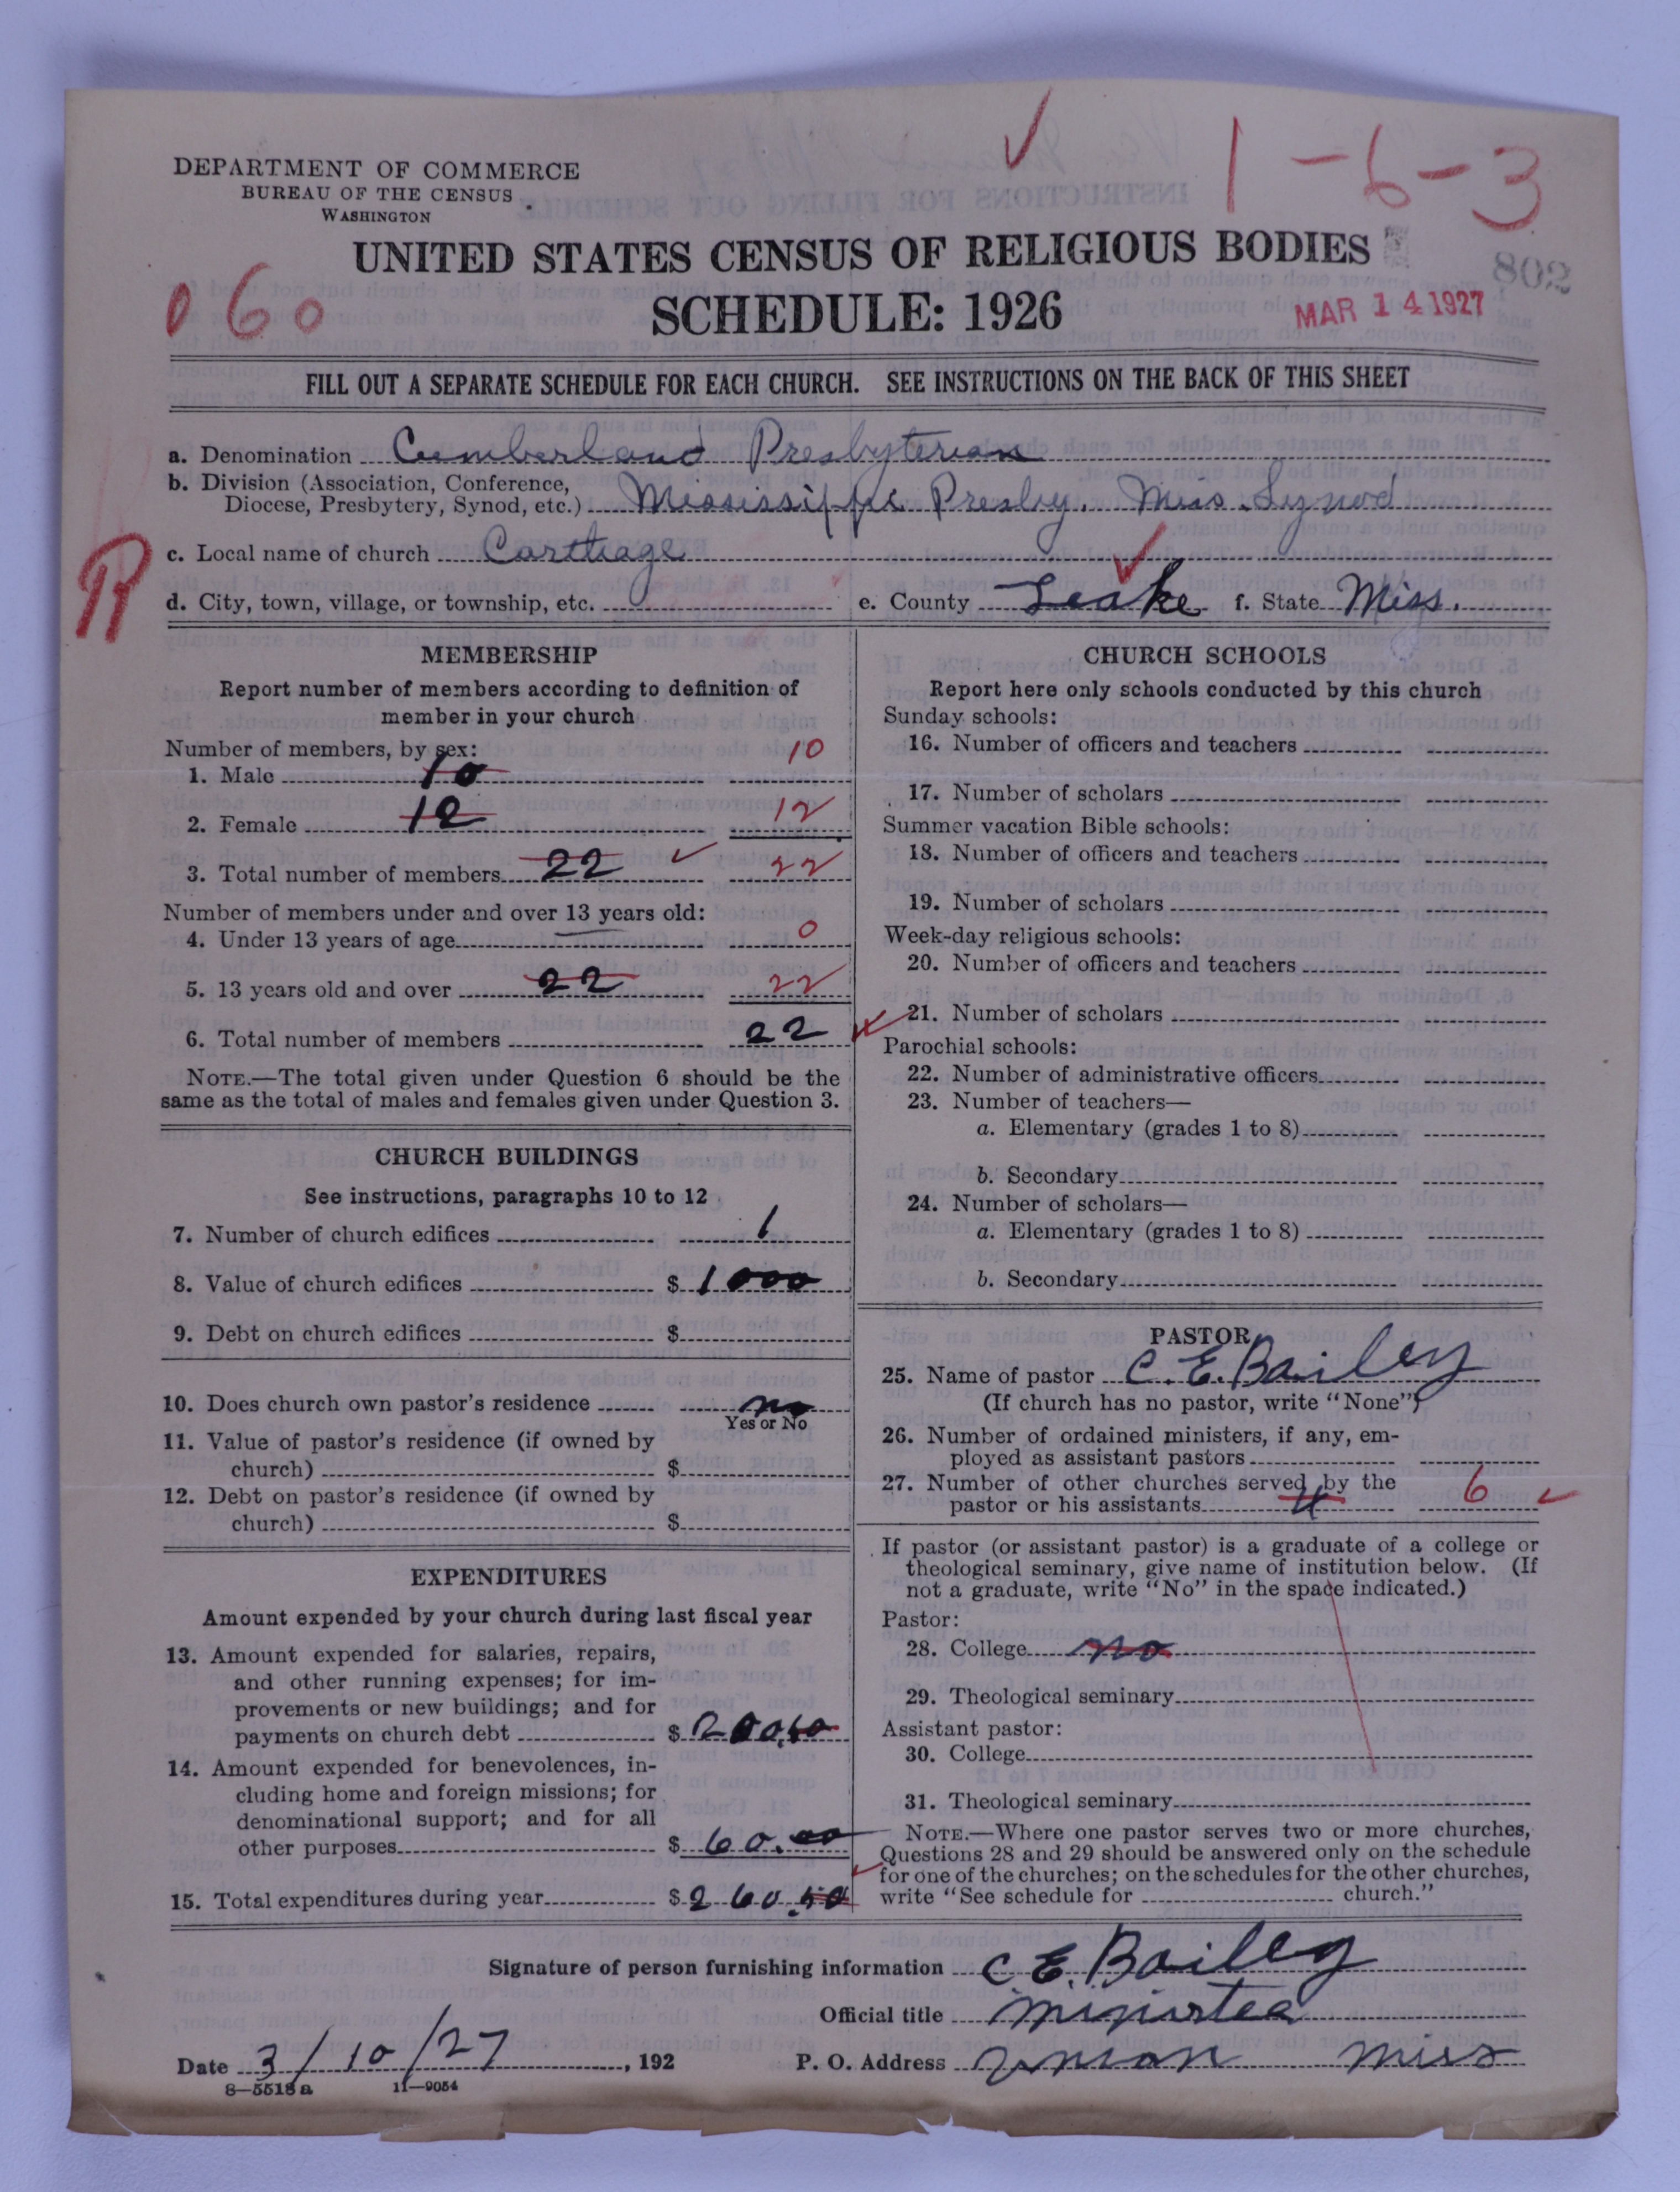 1-6-3
DEPARTMENT OF COMMERCE
BUREAU OF THE CENSUS
WASHINGTON
UNITED STATES CENSUS OF RELIGIOUS BODIES
802
060
SCHEDULE: 1926
MAR 14 1927
FILL OUT A SEPARATE SCHEDULE FOR EACH CHURCH. SEE INSTRUCTIONS ON THE BACK OF THIS SHEET
a. Denomination Cumberland Presbyterian
b. Division (Association, Conference,
Diocese, Presbytery, Synod, etc.) Mississippi Presby. Miss. Synod
c. Local name of church Carthage
R
d. City, town, village, or township, etc. e. County Leake f. State Miss.
MEMBERSHIP
Report number of members according to definition of
member in your church
Number of members, by sex:
1. Male 10 10
2. Female 12 12
3. Total number of members 22 22
Number of members under and over 13 years old:
4. Under 13 years of age 0
5. 13 years old and over 22 22
6. Total number of members 22
NOTE.—The total given under Question 6 should be the
same as the total of males and females given under Question 3.
CHURCH BUILDINGS
See instructions, paragraphs 10 to 12
7. Number of church edifices 1
8. Value of church edifices $ 1000
9. Debt on church edifices $
10. Does church own pastor's residence no
Yes or No
11. Value of pastor's residence (if owned by
church) $
12. Debt on pastor's residence (if owned by
church) $
EXPENDITURES
Amount expended by your church during last fiscal year
13. Amount expended for salaries, repairs,
and other running expenses; for im-
provements or new buildings; and for
payments on church debt $
14. Amount expended for benevolences, in-
cluding home and foreign missions; for
denominational support; and for all
other purposes $ 60.00
15. Total expenditures during year $ 260
CHURCH SCHOOLS
Report here only schools conducted by this church
Sunday schools:
16. Number of officers and teachers
17. Number of scholars
Summer vacation Bible schools:
18. Number of officers and teachers
19. Number of scholars
Week-day religious schools:
20. Number of officers and teachers
21. Number of scholars
Parochial schools:
22. Number of administrative officers
23. Number of teachers—
a. Elementary (grades 1 to 8)
b. Secondary
24. Number of scholars—
a. Elementary (grades 1 to 8)
b. Secondary
PASTOR
25. Name of pastor C. E. Bailey
(If church has no pastor, write "None")
26. Number of ordained ministers, if any, em-
ployed as assistant pastors
27. Number of other churches served by the
pastor or his assistants 4 6
If pastor (or assistant pastor) is a graduate of a college or
theological seminary, give name of institution below. (If
not a graduate, write "No" in the space indicated.)
Pastor:
28. College no
29. Theological seminary
Assistant pastor:
30. College
31. Theological seminary
NOTE.—Where one pastor serves two or more churches,
Questions 28 and 29 should be answered only on the schedule
for one of the churches; on the schedules for the other churches,
write "See schedule for church."
Signature of person furnishing information C E. Bailey
Official title Minister
Date 3/10/27, 192 P. O. Address Union Miss
8—5518 a 11—9054